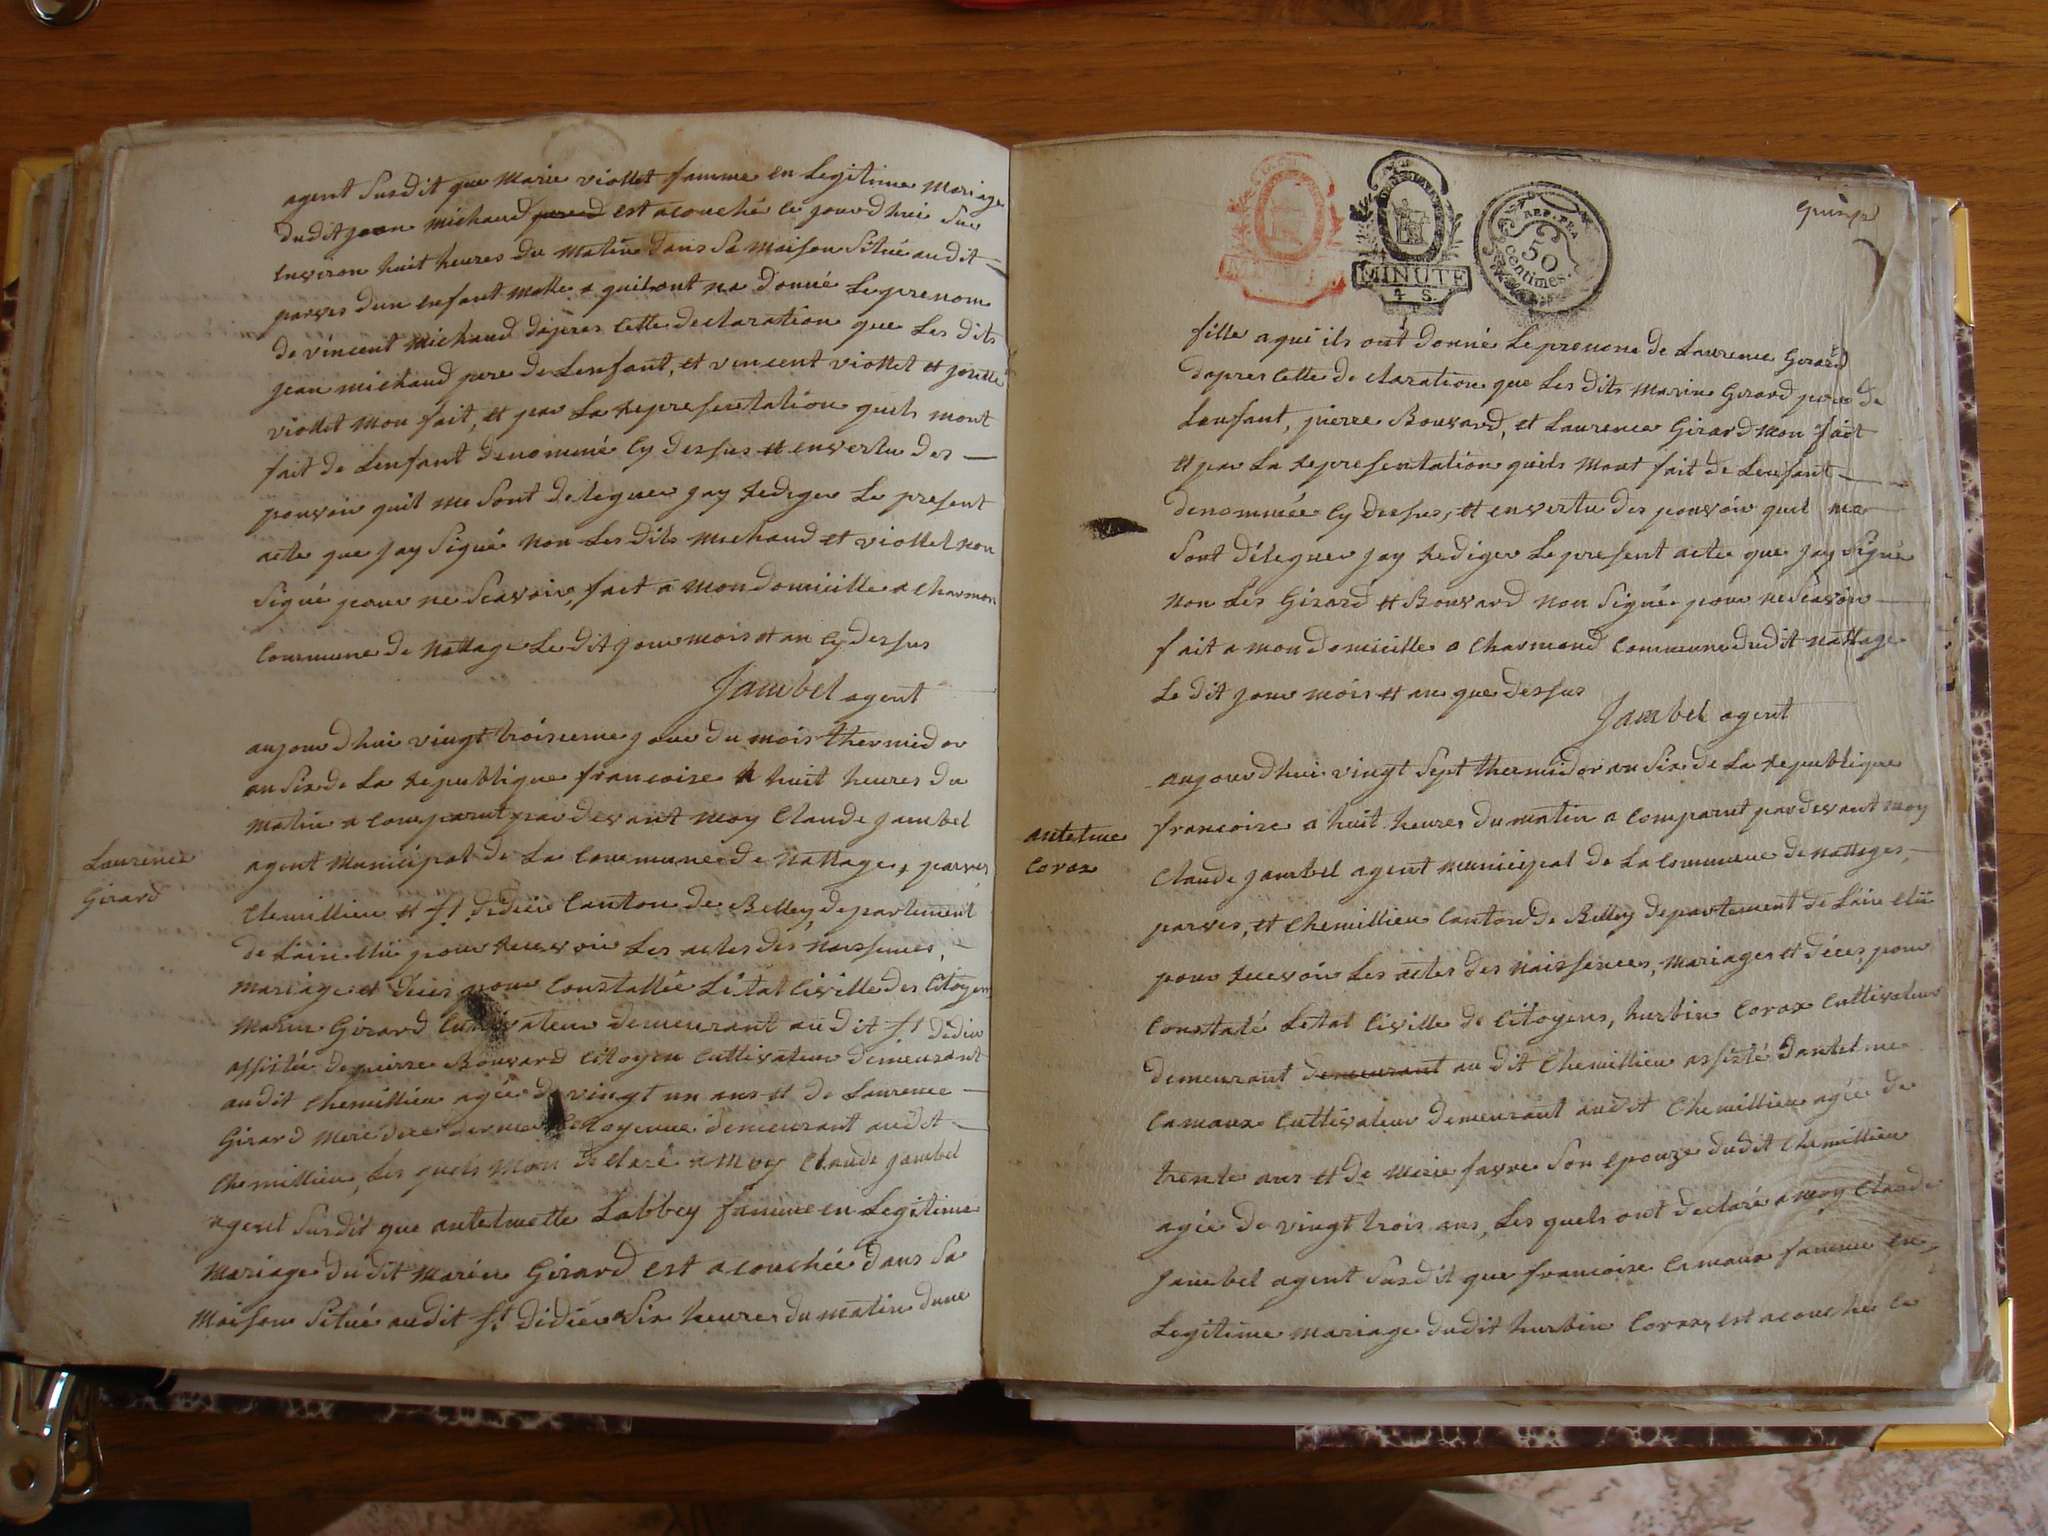 agent Susdit que Marie viollet famme en Legitime Mariage
dudit jean Michaud est acouché ce jourdhui Sur
Environ huit heures du Matin dans Sa Maison Situé audit
parves dun enfant Malle a quil ont na donné Le prenom
de vincent Michaud dapres cette declaration que Les dits
jean michaud pere de Lenfant, et vincent viollet et
viollet Mon fait, et par La Representation quils mont
fait de Lenfant denommé Cy dessus et envertu des
pouvoir quil me Sont deleguer jay Rediger Le present
acte que jay Signé Non Les dits Michaud et viollet non
Signé pour ne Scavoir, fait a mon domicille a Charmon
Commune de Nattage Le dit jour mois et an Cy dessus
Jambel agent
aujourdhui vingt troisieme jour du mois thermidor
an Six de La Republique francoise a huit heures du
Matin a comparut par devant moy Claude jambel
agent Municipal de La Commune de Nattage, parves,
Laurence
Girard
Chemillieu et St didier Canton de Belley, departement
de Lain Elü pour Recevoir Les actes des Naissences,
Mariages et déces pour Constallée Létat Civille des Citoyen
Marin Girard Cultivateur demeurant au dit St didier
assistée de pierre Bouvard Citoyen Cultivateur demeurant
au dit Chemillieu agée de vingt un ans et de Laurence
Girard Citoyenne demeurant audit
Chemillieu, Les quels Mon declaré a Moy Claude jambel
agent Susdit que antelmette Labbey famme en Legitime
Mariage du dit Marin Girard est acouchée dans Sa
Maison Situé audit St Didier a Six heures du matin dune
MINUTE
4 S.
REP. FRA
50
Centimes.
fille a qui ils ont donné Le prenom de Laurence Girard
dapres cette declaration que Les dits Marin Girard pere de
Lenfant, pierre Bouvard, et Laurence Girard Mon fait
et par La Representation quils Mont fait de Lenfant
denommée Cy dessus, et envertu des pouvoir quil me
Sont déleguer jay Rediger Le present acte que jay Signé
Non Les Girard et Bouvard Non Signé pour ne Scavoir
fait a mon domicille a Charmond Commune dudit Nattage
Le dit jour mois et an que dessus
Jambel agent
aujourdhui vingt Sept thermidor an Six de La Republique
francoise a huit heures du matin a Comparut par devant Moy
antelme
Corax
Claude jambel agent Municipal de La Commune de Nattages,
parves, et Chemillieu Canton de Belley departement de Lain elü
pour Recevoir Les actes des Naissences, Mariages et déces, pour
Constaté Letat Civille de Citoyens, hurbin Corax Cultivateur
demeurant demeurant au dit Chemillieu assisté dantelme
Camaux Cultivateur demeurant audit Chemillieu agée de
trente ans et de Marie favre Son epouze dudit Chemillieu
agée de vingt trois ans, Les quels ont declaré a moy Claude
jambel agent Susdit que francoise Camaux famme en
Legitime Mariage dudit hurbin Corax, est acouchée ce